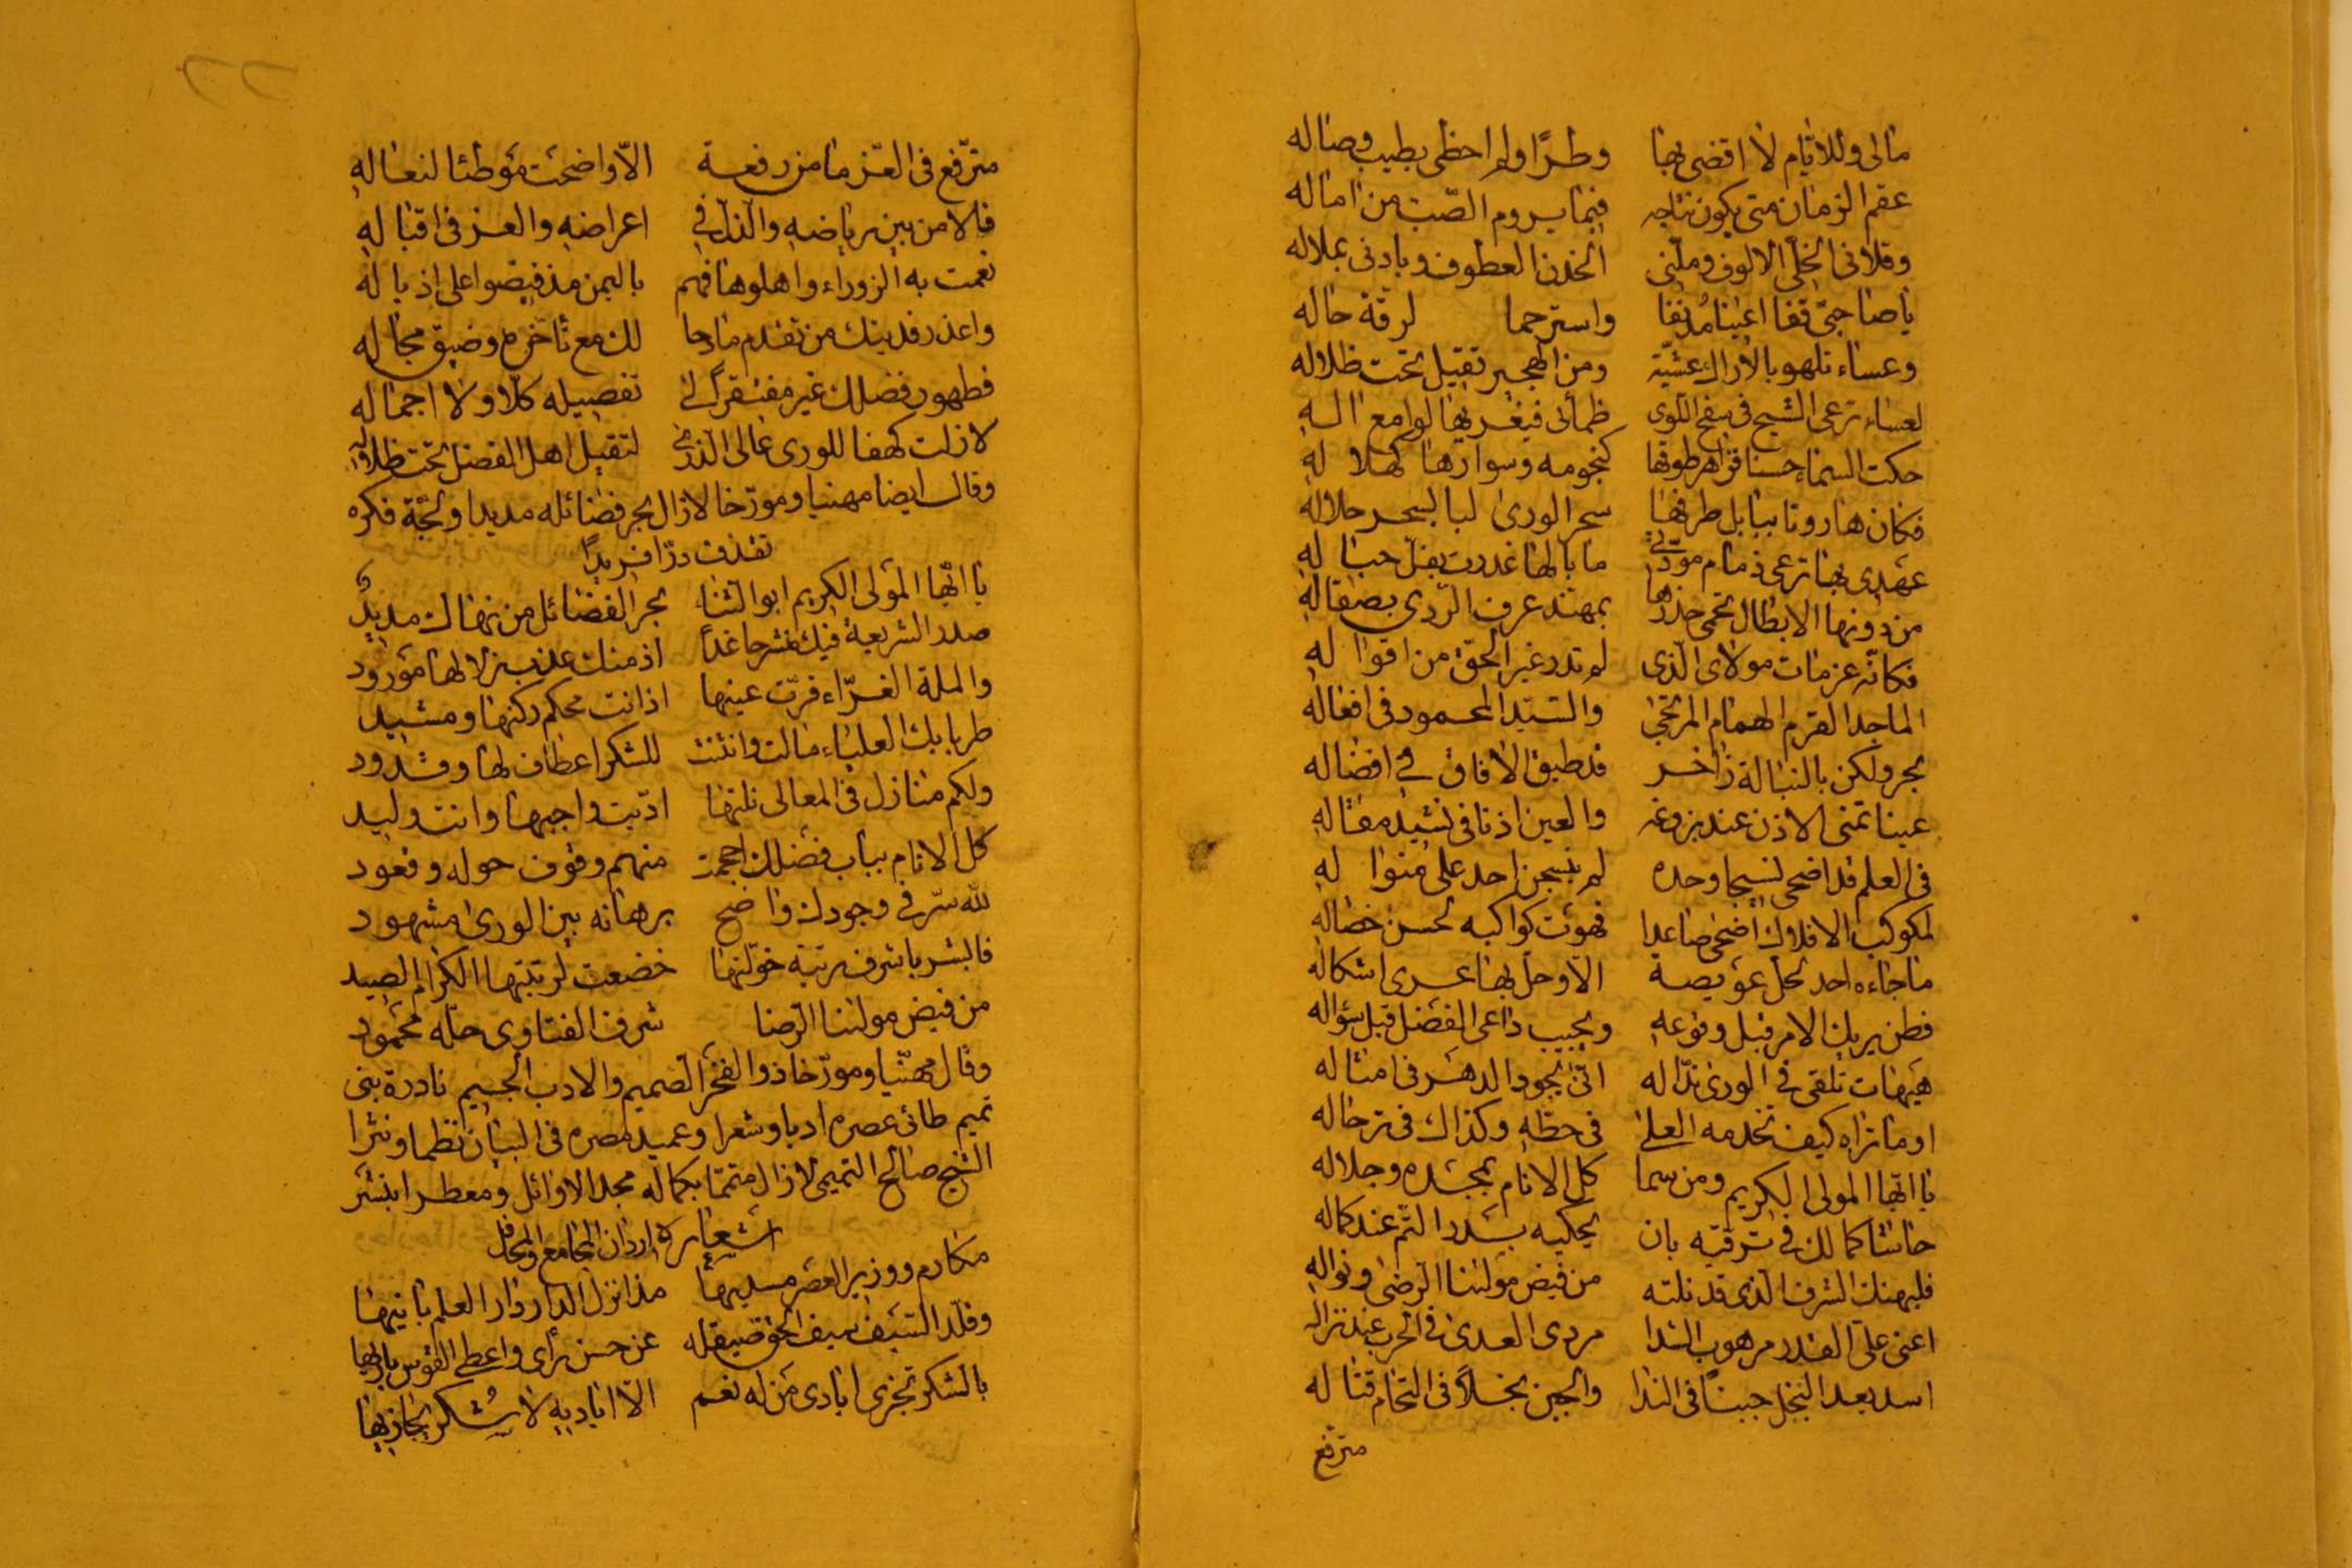 مالى وللايام لا اقضى بها وطرًا ولم احظى بطيب وصاله
عقم الزمان متى يكون نتاجه فيما يروم الصّب من اماله
وقلانى الخلّى الالوف وملّنى الخدن العطوف وبادنى بملاله
ياصاحبىّ قفا اعينا مُدنفا واسترحما لرقّة حاله
وعساء تلهو بالاراك عشيّة ومن الهجير تقيل تحت ظلاله
لعساء ترعى الشيح فى سفح اللّوى ظمأى فيغريها لوامع اله
حكت السماء حسنا قراهر طوقها كنجومه وسوارها كهلاله
فكان هاروتا ببابل طرفها سحر الورى لبا لسحر حلاله
عهدى بها ترعى ذمام مودّتى ما بالها غدرت بفتل حباله
من دونها الابطال تحمى خدرها بمهنّد عرف الرّدى بصقاله
فكانّه عزمات مولاى الّذى لم تدر غير الحقّ من اقواله
الماجد القرم الهمام المرتجى والسّيّد المحمود فى افعاله
بحر ولكن بالنبالة زاخر قد طبق الافاق فى افضاله
عينا تمنى الاذن عند بزوغه والعين اذنا فى نشيد مقاله
فى العلم قد اضحى نسيجا وحده لم ينسجن احد على منواله
لمكوكب الافلاك اضحى صاعدا فهوت كواكبه لحسن خصاله
ما جاءه احد لحل عويصة الاّ وحل بها عرى اشكاله
فطن يريك الامر قبل وقوعه ويجيب داعى الفضل قبل سؤاله
هيهات تلقى فى الورى ندّا له انّى يجود الدهر فى امثاله
او ما تراه كيف تخدمه العلى فى حطّه وكذاك فى ترحاله
يا ايّها المولى الكريم ومن سما كل الانام بمجده وجلاله
حاشا كمالك فى ترقّيه بان يحكيه بدر التّم عند كماله
فليهنك الشرف الّذى قد نلته من فيض مولنا الرضى ونواله
اعنى على القدر مرهوب الشدا مردى العدى فى الحرب عند نزاله
اسد يعد البخل جبنًا فى الندا والجبن بخلاً فى التحام قتاله
مترفع
مترّفع فى العّز ما من رفعة الاّ واضحت موطئا لنعاله
فالامن بين رياضه والذلّ فى اعراضه والعز فى اقباله
نعمت به الزوراء واهلوها فهم باليمن مذ فيضوا على اذياله
واعذر فديتك من تقدم مادحا لك مع تأخّره وضيق مجاله
فظهور فضلك غير مفتقر الى تفصيله كلّا ولا اجماله
لا زلت كهفا للورى عالى الذرى لتقيل اهل الفضل تحت ظلاله
وقال ايضا مهنيا ومورّخا لازال بحر فضائله مديدا ولجّة فكره
تقذف درّا فريدًا
يا ايّها المولى الكريم ابو الثنا بحر الفضائل من نهاك مديد
صدر الشريعة فيك منشرحا غدًا اذ منك عذب زلالها مورود
والملة الغرّاء قرّت عينها اذ انت محكم ركنها ومشيد
طربا بك العلياء مالت وانثنت للشكر اعطاف لها وقدود
ولكم منازل فى المعالى نلتها ادّيت واجبها وانت وليد
كل الانام بباب فضلك احجمت منهم وقوف حوله وقعود
لله سرّ فى وجودك واضح برهانه بين الورى مشهود
فالبشر ياشرف رتبة خوّلتها خضعت لرتبتها الكرام الصيد
من فيض مولنا الرضا شرف الفتاوى حلّه محمود
وقال مهنّيا ومورّخا ذو الفخر الصميم والادب الجسيم نادرة بنى
تميم طائى عصره ادبا وشعرا وعميد مصره فى البيان نظما ونثرا
الشيخ صالح التميمى لازال متمتما بكماله مجد الاوائل ومعطرا بنشر
اشعاره اردان المجامع والمحافل
مكارم ووزير العصر مسديها مذ انزل الدار دار العلم بانيها
وقلّد السّيف سيف الحق صيقله عن حسن رأى واعطى القوس باريها
بالشكر تجزى ايادى من له نعم الاّ اياديه لا شُكر يجازيها